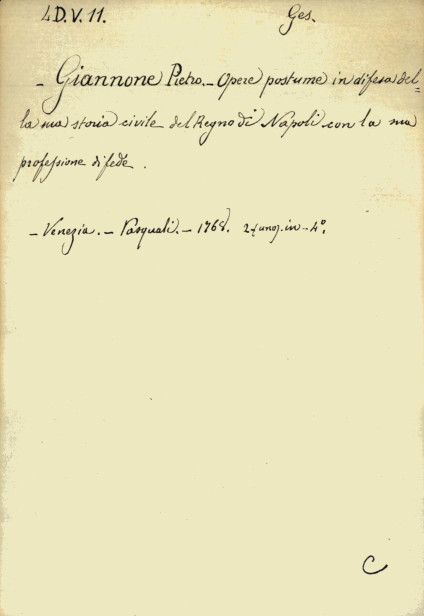 4D.V.11. Ges.
- Giannone Pietro. - Opere postume in difesa del=
la sua storia civile del Regno di Napoli con la sua
professione di fede.
- Venezia. - Pasquali. - 1768. in - 4º.
C